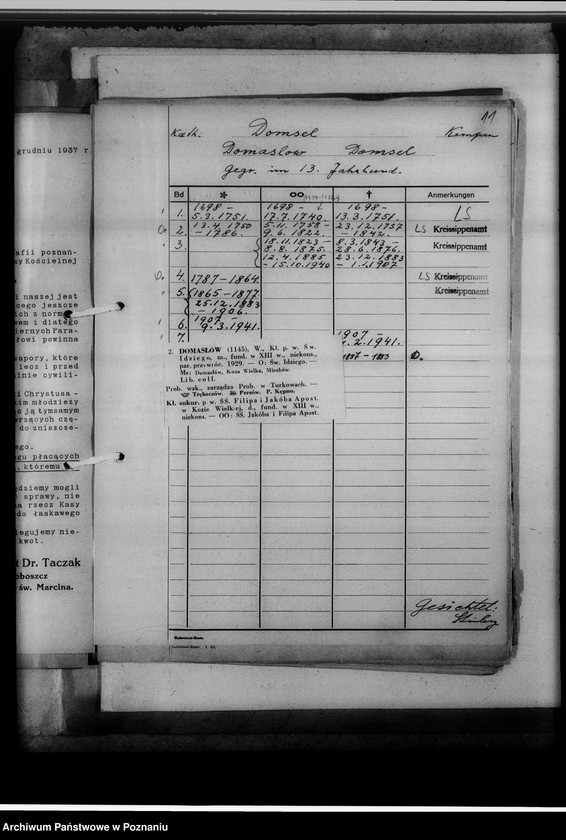 11
Kath. Domsel Kempen
Domaslow Domsel
gegr. im 13. Jahrhund.
Bd * OO † Anmerkungen
1. 1698 – 5.3.1751. 1698 – 17.7.1740. 1698 – 13.3.1751. LS
2. 13.4.1750 – 1786. 5.11.1758 – 9.6.1822. 23.12.1757 – 1842. LS Kreissippenamt
3. 18.11.1823 – 8.8.1875. 8.3.1843 – 28.6.1876. Kreissippenamt
12.4.1885 – 15.10.1940 23.12.1883 – 1.1.1907
4. 1787 – 1864. LS Kreissippenamt
5. 1865 – 1877. Kreissippenamt
25.12.1883 – 1906.
6. 1907 – 9.3.1941.
7. 1907 – 2.1941.
2. DOMASŁÓW (1145), W., Kł. p. w. Św.
Idziego, m., fund. w XIII w., niekons.,
par. przywróc. 1929. — O: Św. Idziego. —
Ms: Domasłów, Koza Wielka, Miechów.
Lib. coll.
Prob. wak., zarządza Prob. w Turkowach. —
Trębaczów. Perzów. P. Kępno.
Kł. sukur. p. w. ŚŚ. Filipa i Jakóba Apost.
w Kozie Wielkiej, d., fund. w XIII w.,
niekons. — OO: ŚŚ. Jakóba i Filipa Apost.
Gesichtet:
grudniu 1937 r.
afii poznań-
sy Kościelnej
i naszej jest
cego jeszcze
ich z norm
wem i dlatego
iernych Para-
łowi powinna
sapory, które
lecz i przed
inie cywili-
i Chrystusa -
kim młodzieży
e ją tymsamym
erzących czę-
do zniszcze-
ego.
gu płacących
, któremu
dziemy mogli
sprawy, nie
na rzecz Kasy
do łaskawego
iegujemy nie-
kwot.
t Dr. Taczak
oboszcz
św. Marcina.
Archiwum Państwowe w Poznaniu